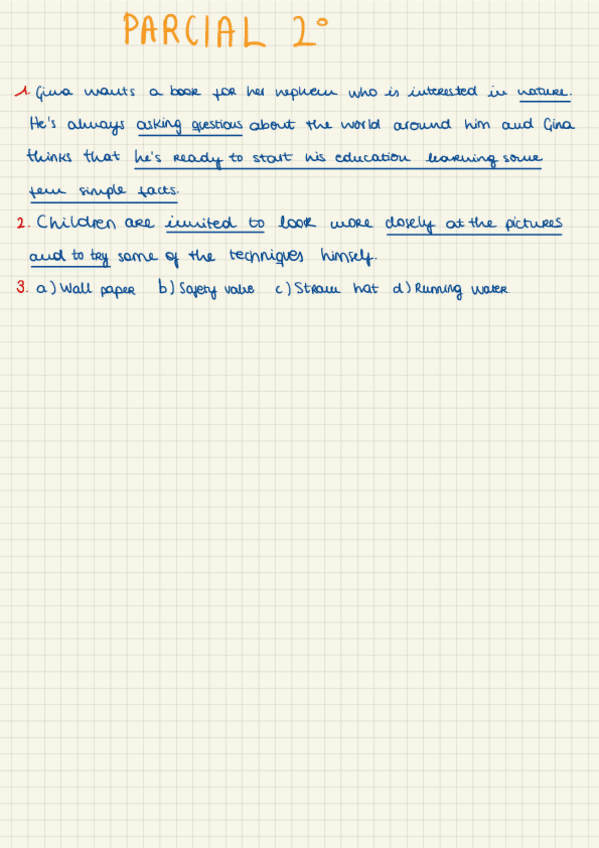 PARCIAL 2°
1. Gina wants a book for her nephew who is interested in nature.
He's always asking questions about the world around him and Gina
thinks that he's ready to start his education learning some
few simple facts.
2. Children are invited to look more closely at the pictures
and to try some of the techniques himself.
3. a) Wall paper b) Safety valve c) Straw hat d) Running water